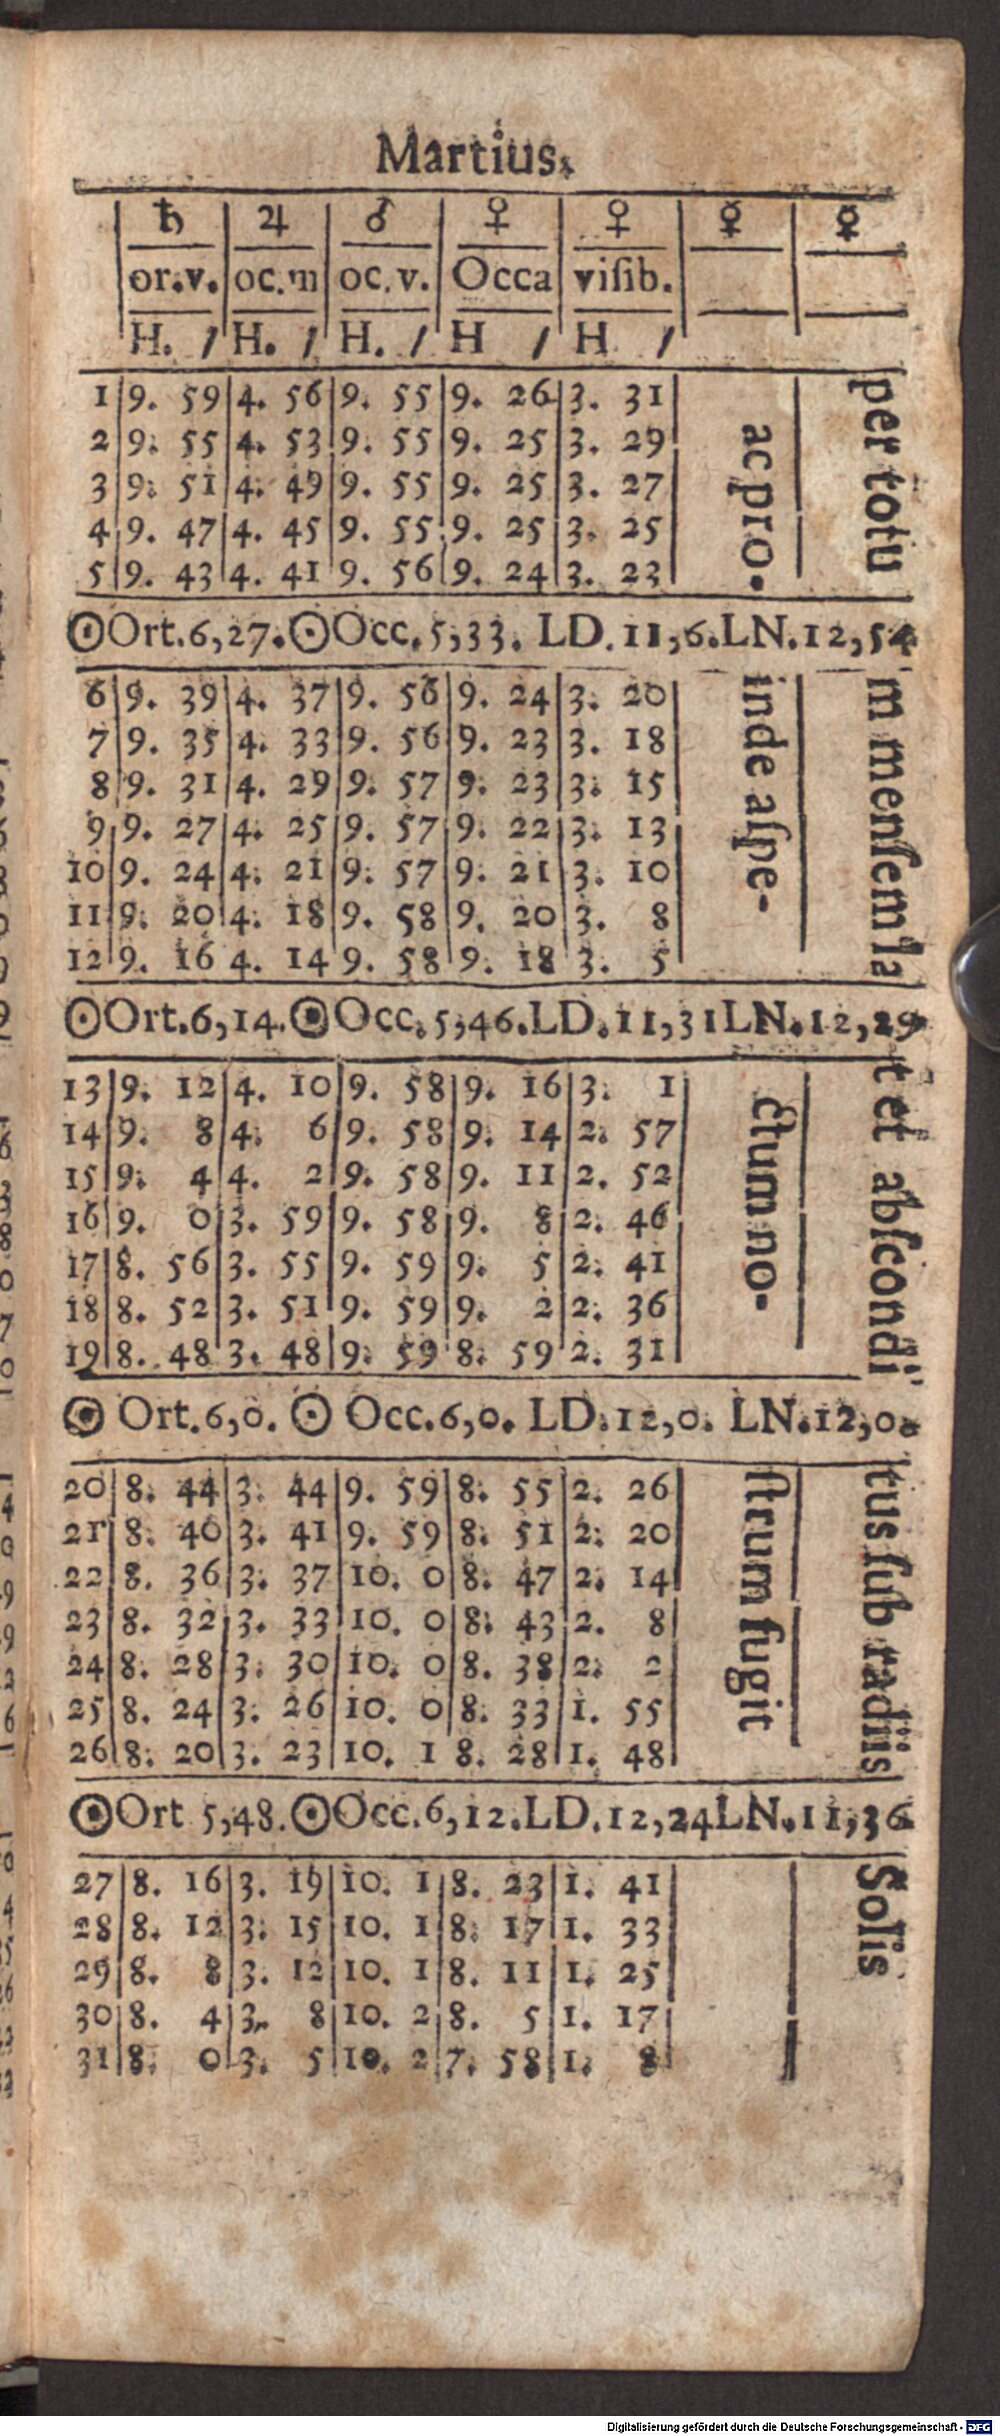 Martius.
♄ ♃ ♂ ♀ ♀ ☿ ☿
or.v. oc.m oc.v. Occa viſib.
H. / H. / H. / H / H /
1 9. 59 4. 56 9. 55 9. 26 3. 31
2 9. 55 4. 53 9. 55 9. 25 3. 29
3 9. 51 4. 49 9. 55 9. 25 3. 27
4 9. 47 4. 45 9. 55 9. 25 3. 25
5 9. 43 4. 41 9. 56 9. 24 3. 23
☉Ort.6,27.☉Occ.5,33. LD.11,6.LN.12,54
6 9. 39 4. 37 9. 56 9. 24 3. 20
7 9. 35 4. 33 9. 56 9. 23 3. 18
8 9. 31 4. 29 9. 57 9. 23 3. 15
9 9. 27 4. 25 9. 57 9. 22 3. 13
10 9. 24 4. 21 9. 57 9. 21 3. 10
11 9. 20 4. 18 9. 58 9. 20 3. 8
12 9. 16 4. 14 9. 58 9. 18 3. 5
☉Ort.6,14.☉Occ.5,46.LD.11,31LN.12,29
13 9. 12 4. 10 9. 58 9. 16 3. 1
14 9. 8 4. 6 9. 58 9. 14 2. 57
15 9. 4 4. 2 9. 58 9. 11 2. 52
16 9. 0 3. 59 9. 58 9. 8 2. 46
17 8. 56 3. 55 9. 59 9. 5 2. 41
18 8. 52 3. 51 9. 59 9. 2 2. 36
19 8. 48 3. 48 9. 59 8. 59 2. 31
☉ Ort.6,0. ☉ Occ.6,0. LD.12,0. LN.12,0.
20 8. 44 3. 44 9. 59 8. 55 2. 26
21 8. 40 3. 41 9. 59 8. 51 2. 20
22 8. 36 3. 37 10. 0 8. 47 2. 14
23 8. 32 3. 33 10. 0 8. 43 2. 8
24 8. 28 3. 30 10. 0 8. 38 2. 2
25 8. 24 3. 26 10. 0 8. 33 1. 55
26 8. 20 3. 23 10. 1 8. 28 1. 48
☉Ort 5,48.☉Occ.6,12.LD.12,24LN.11,36
27 8. 16 3. 19 10. 1 8. 23 1. 41
28 8. 12 3. 15 10. 1 8. 17 1. 33
29 8. 8 3. 12 10. 1 8. 11 1. 25
30 8. 4 3. 8 10. 2 8. 5 1. 17
31 8. 0 3. 5 10. 2 7. 58 1. 8
ac pro-
inde aſpe-
ctum no-
ſtrum fugit
per totu
m menſem la
t et abſcondi
tus ſub radiis
Solis
Digitalisierung gefördert durch die Deutsche Forschungsgemeinschaft - DFG